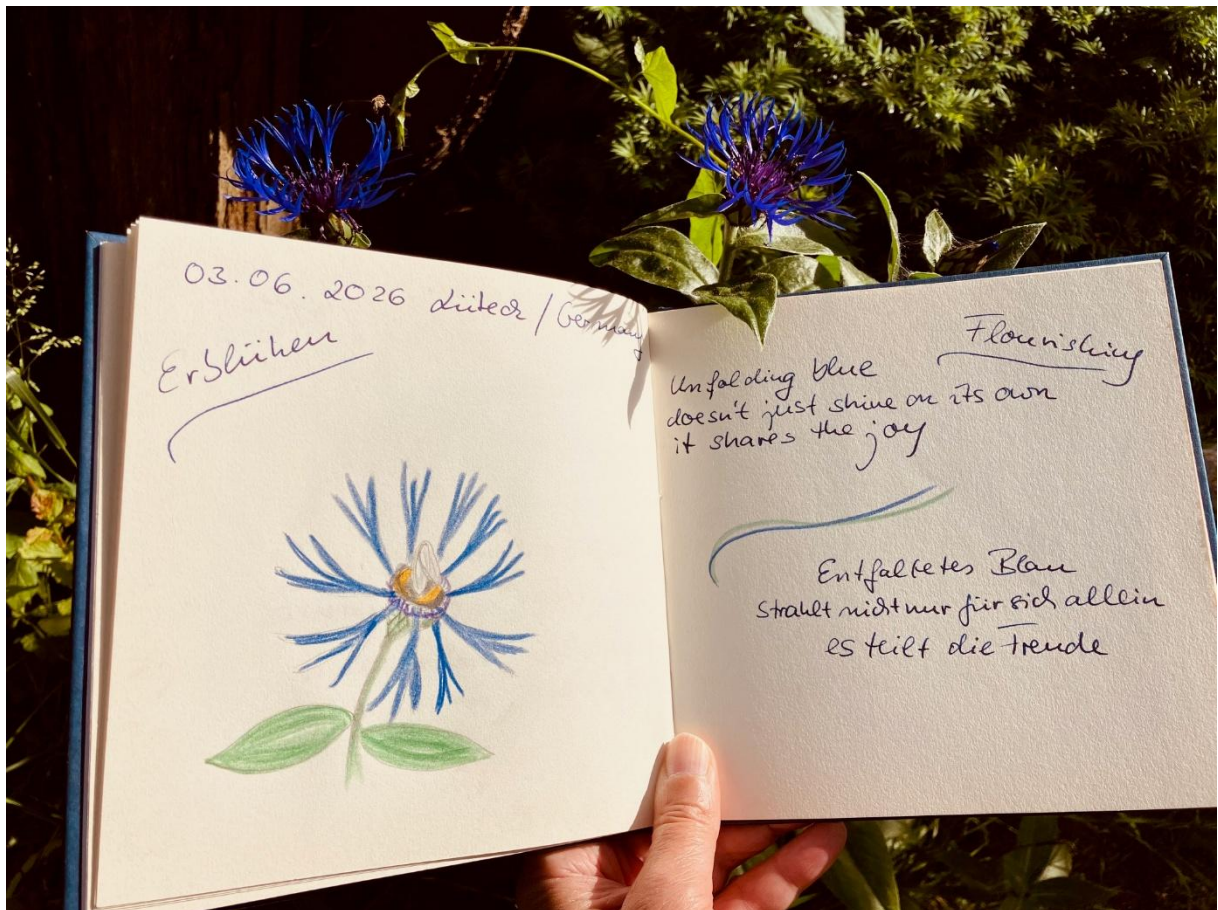 03.06.2026 Lübeck / Germany
Erblühen
Flourishing
Unfolding blue
doesn't just shine on its own
it shares the joy
Entfaltetes Blau
strahlt nicht nur für sich allein
es teilt die Freude